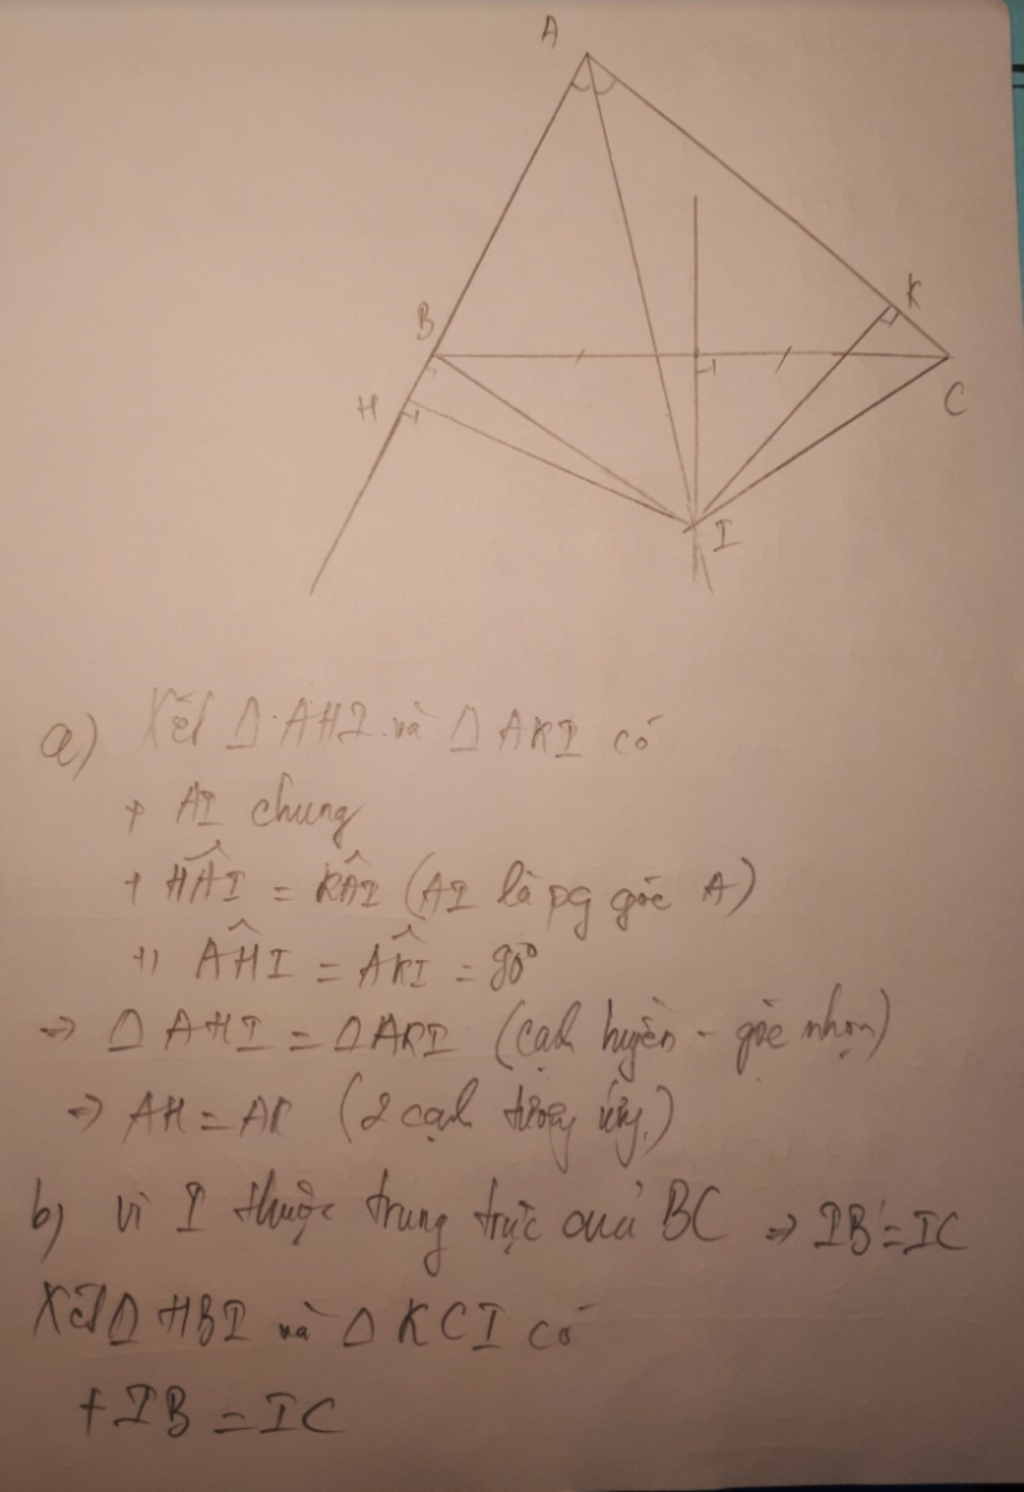 A
K
B
H
C
I
a) Xét Δ AHI và Δ AKI có
+ AI chung
+ HÂI = KÂI (AI là pg góc A)
+) AĤI = AK̂I = 90°
=> Δ AHI = Δ AKI (cạnh huyền - góc nhọn)
=> AH = AK (2 cạnh tương ứng)
b) vì I thuộc trung trực của BC => IB = IC
Xét Δ HBI và Δ KCI có
+ IB = IC